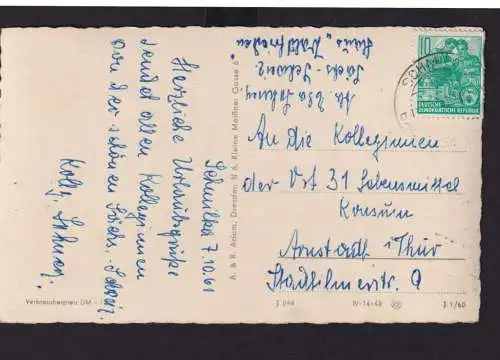 Schmilka 7.10.61
Herzliche Urlaubsgrüße
sendet allen Kolleginnen
von der schönen Sächs. Schweiz
Koll.
Verbraucherpreis DM
A. & R. Adam, Dresden, N 6, Kleine Meißner Gasse 6
Sächs. Schweiz
Haus „Waldfrieden“
10
DEUTSCHE
DEMOKRATISCHE REPUBLIK
An die Kolleginnen
der Vst 31 Lebensmittel
Konsum
Arnstadt i. Thür
Stadtilmerstr. 9
J 044
IV-14-43
J 1/60